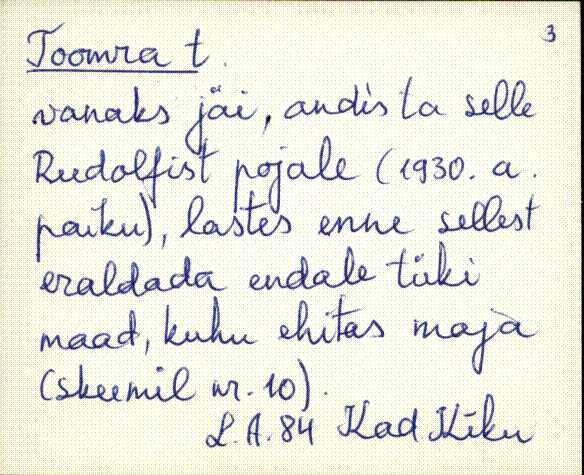 3
Toomra t.
vanaks jäi, andis ta selle
Rudolfist pojale (1930. a.
paiku), lastes enne sellest
eraldada endale tüki
maad, kuhu ehitas maja
(skeemil nr. 10).
L.A. 84 Kad Kiku